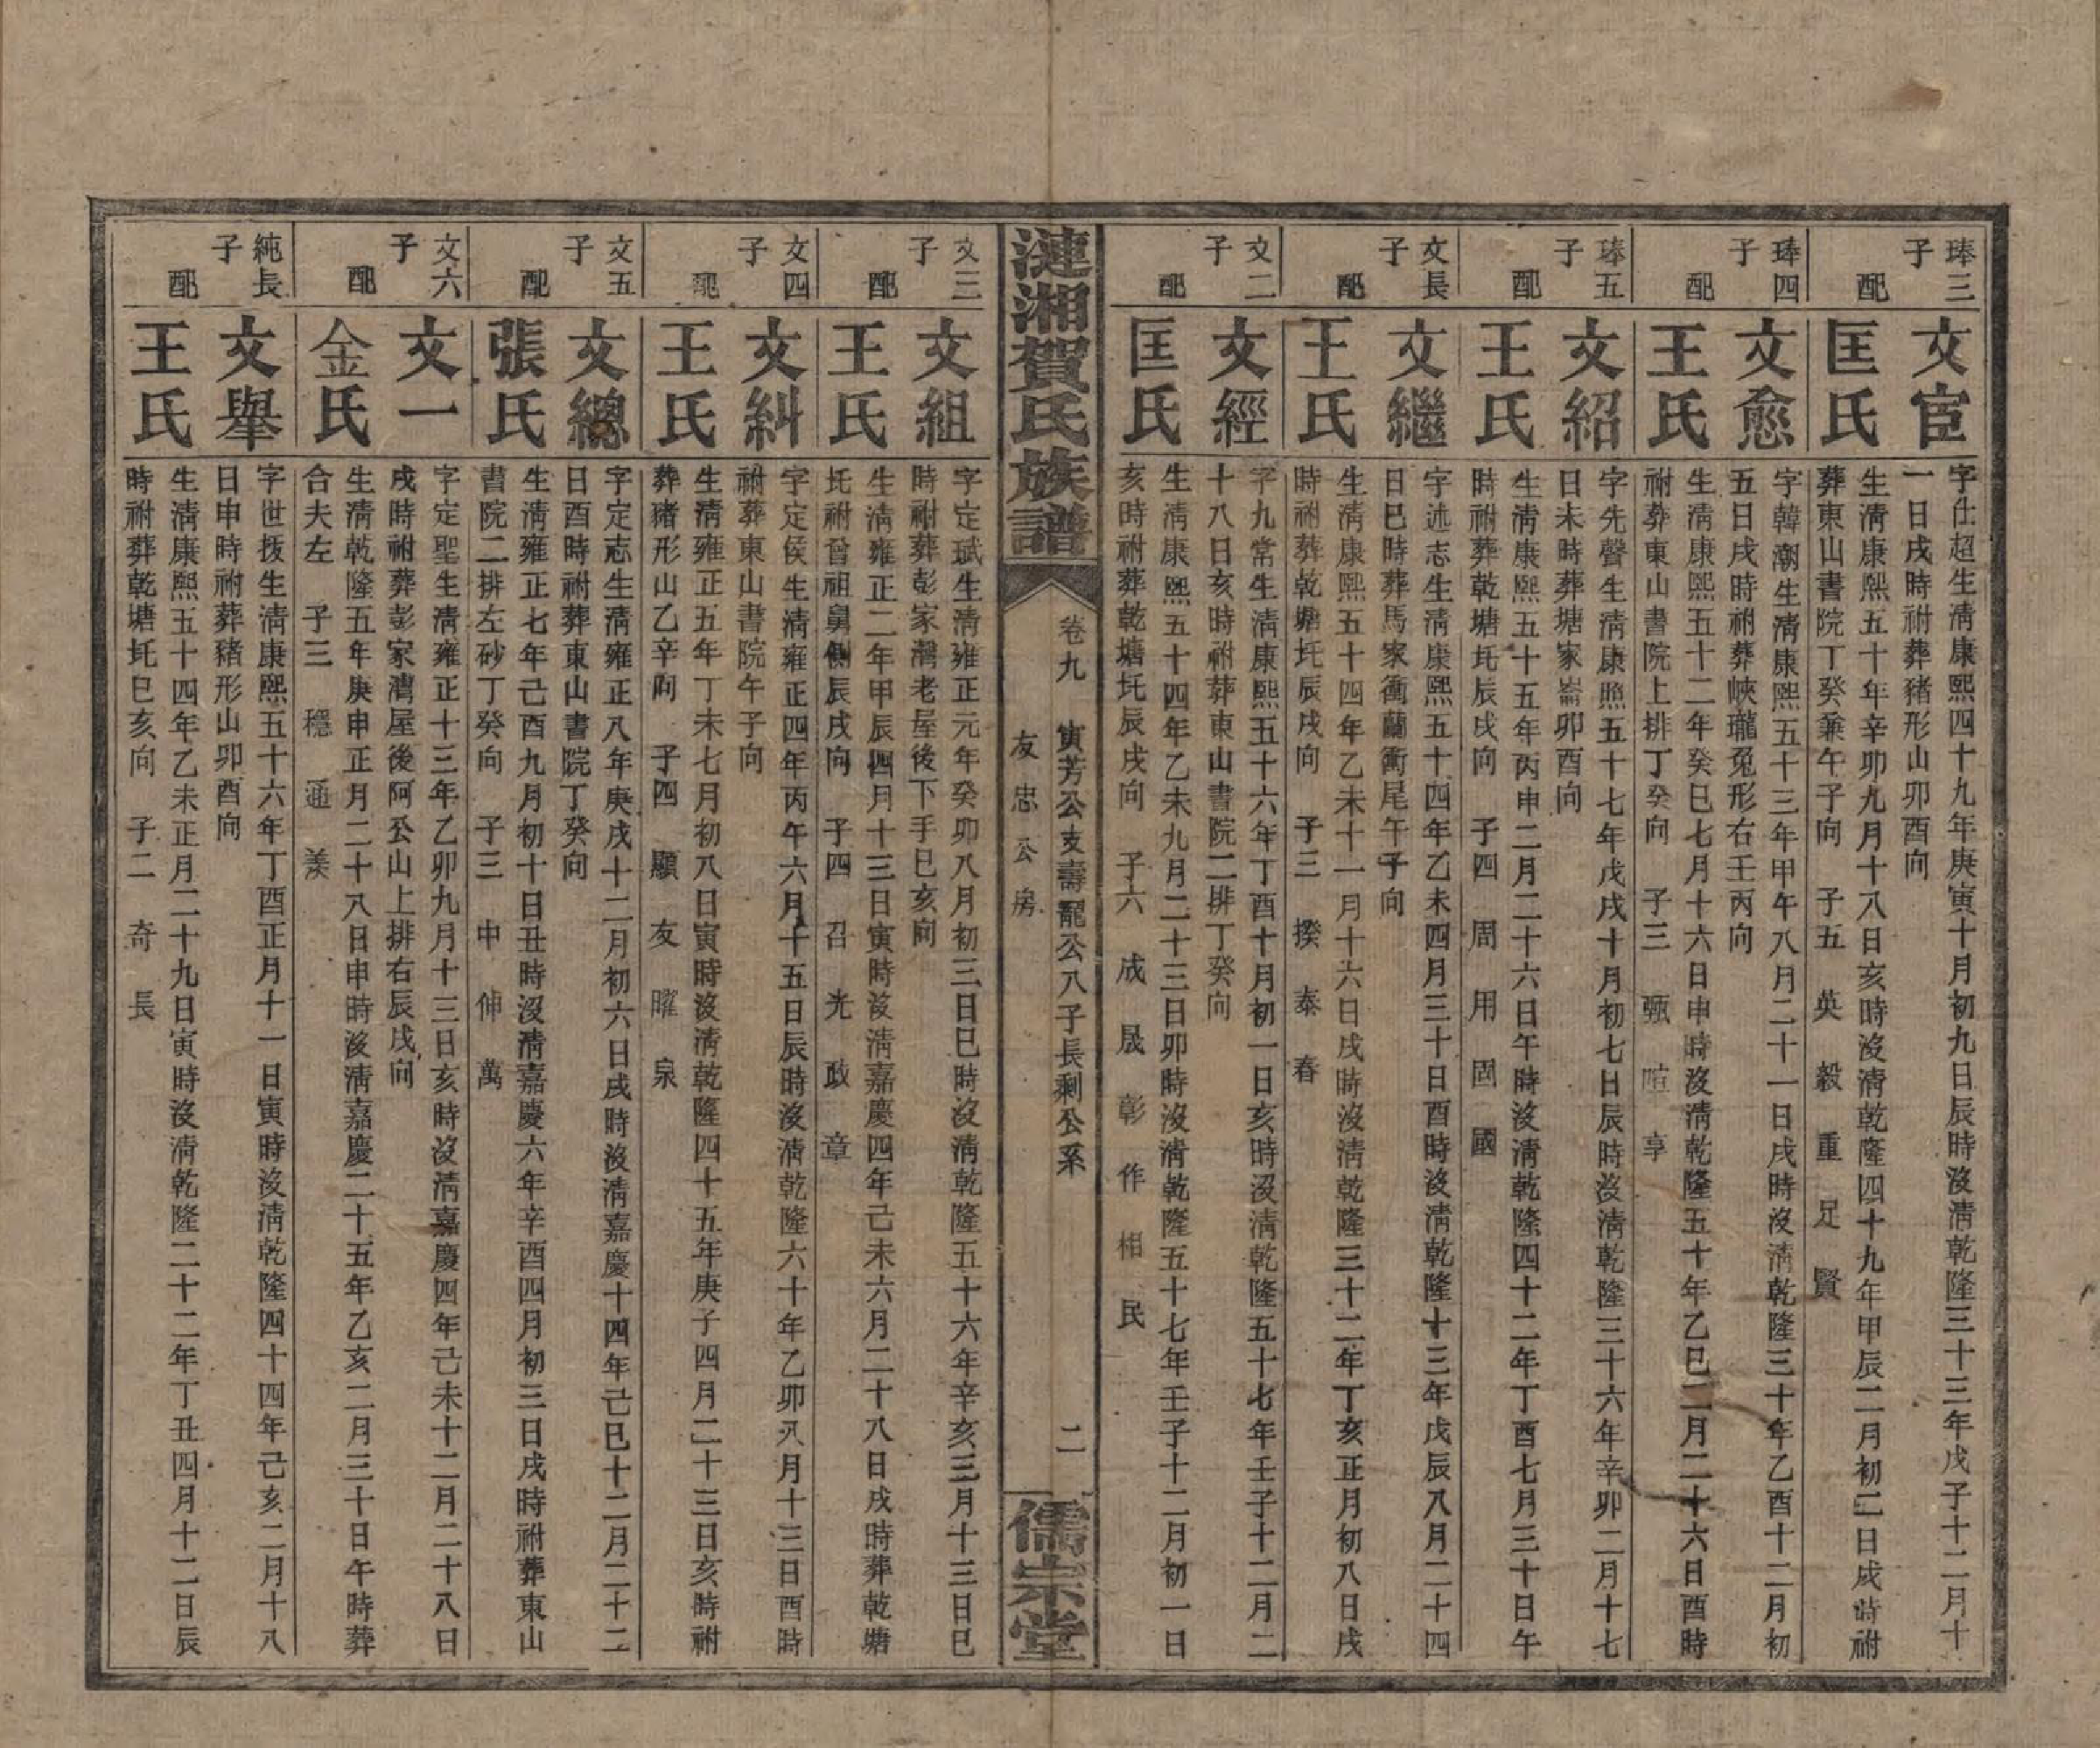 琫三子
文宦
字仕超生淸康熙四十九年庚寅十月初九日辰時沒淸乾隆三十三年戊子十二月十
一日戌時祔葬豬形山卯酉向
配
匡氏
生淸康熙五十年辛卯九月十八日亥時沒淸乾隆四十九年甲辰二月初二日戌時祔
葬東山書院丁癸兼午子向　子五　英　毅　重　足　賢
琫四子
文愈
字韓潮生淸康熙五十三年甲午八月二十一日戌時沒淸乾隆三十年乙酉十二月初
五日戌時祔葬峽瓏兔形右壬丙向
配
王氏
生淸康熙五十二年癸巳七月十六日申時沒淸乾隆五十年乙巳二月二十六日酉時
祔葬東山書院上排丁癸向　子三　甄　暄　享
琫五子
文紹
字先聲生淸康熙五十七年戊戌十月初七日辰時沒淸乾隆三十六年辛卯二月十七
日未時葬塘家崙卯酉向
配
王氏
生淸康熙五十五年丙申二月二十六日午時沒淸乾隆四十二年丁酉七月三十日午
時祔葬乾塘圫辰戌向　子四　周　用　固　國
文長子
文繼
字述志生淸康熙五十四年乙未四月三十日酉時沒淸乾隆十三年戊辰八月二十四
日巳時葬馬家衝蘭衝尾午子向
配
王氏
生淸康熙五十四年乙未十一月十六日戌時沒淸乾隆三十二年丁亥正月初八日戌
時祔葬乾塘圫辰戌向　子三　揆　泰　春
文二子
文經
字九常生淸康熙五十六年丁酉十月初一日亥時沒淸乾隆五十七年壬子十二月二
十八日亥時祔葬東山書院二排丁癸向
配
匡氏
生淸康熙五十四年乙未九月二十三日卯時沒淸乾隆五十七年壬子十二月初一日
亥時祔葬乾塘圫辰戌向　子六　成　晟　彰　作　相　民
漣湘賀氏族譜
卷九　寅芳公支壽龍公八子長剩公系
友忠公房
二
儒宗堂
文三子
文組
字定斌生淸雍正元年癸卯八月初三日巳時沒淸乾隆五十六年辛亥三月十三日巳
時祔葬彭家灣老屋後下手巳亥向
配
王氏
生淸雍正二年甲辰四月十三日寅時沒淸嘉慶四年己未六月二十八日戌時葬乾塘
圫祔曾祖舅側辰戌向　子四　召　光　政　章
文四子
文糾
字定侯生淸雍正四年丙午六月十五日辰時沒淸乾隆六十年乙卯八月十三日酉時
祔葬東山書院午子向
配
王氏
生淸雍正五年丁未七月初八日寅時沒淸乾隆四十五年庚子四月二十三日亥時祔
葬豬形山乙辛向　子四　顯　友　曜　泉
文五子
文總
字定志生淸雍正八年庚戌十二月初六日戌時沒淸嘉慶十四年己巳十二月二十二
日酉時祔葬東山書院丁癸向
配
張氏
生淸雍正七年己酉九月初十日丑時沒淸嘉慶六年辛酉四月初三日戌時祔葬東山
書院二排左砂丁癸向　子三　中　伸　萬
文六子
文一
字定聖生淸雍正十三年乙卯九月十三日亥時沒淸嘉慶四年己未十二月二十八日
戌時祔葬彭家灣屋後阿公山上排右辰戌向
配
金氏
生淸乾隆五年庚申正月二十八日申時沒淸嘉慶二十五年乙亥二月三十日午時葬
合夫左　子三　穩　通　羨
純長子
文舉
字世拔生淸康熙五十六年丁酉正月十一日寅時沒淸乾隆四十四年己亥二月十八
日申時祔葬豬形山卯酉向
配
王氏
生淸康熙五十四年乙未正月二十九日寅時沒淸乾隆二十二年丁丑四月十二日辰
時祔葬乾塘圫巳亥向　子二　奇　長